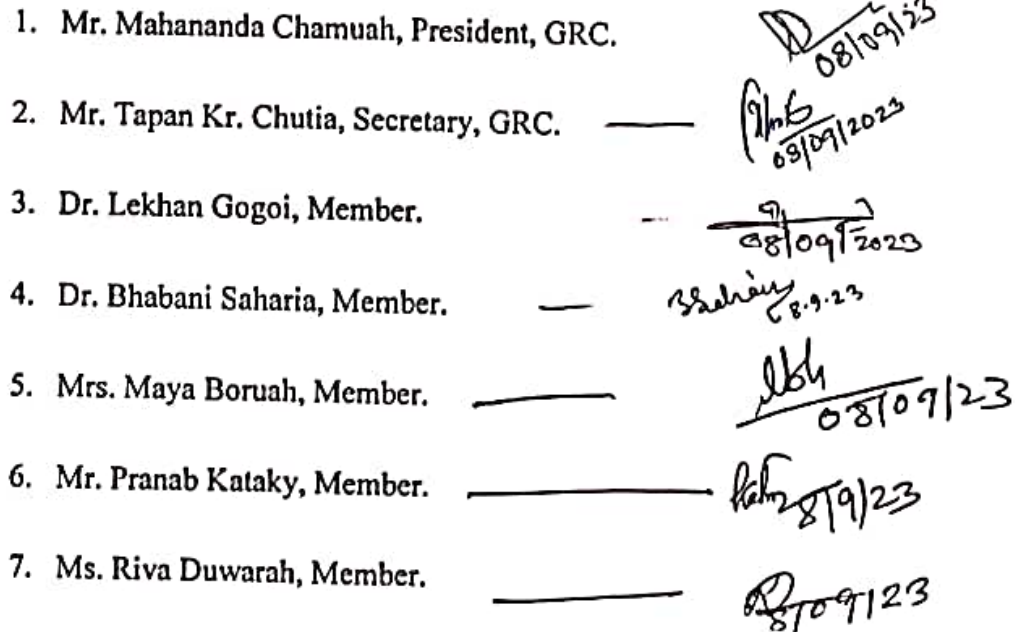 1. Mr. Mahananda Chamuah, President, GRC. 08/09/23
2. Mr. Tapan Kr. Chutia, Secretary, GRC. 08/09/2023
3. Dr. Lekhan Gogoi, Member. 08/09/2023
4. Dr. Bhabani Saharia, Member. BSaharia 8.9.23
5. Mrs. Maya Boruah, Member. 08/09/23
6. Mr. Pranab Kataky, Member. 8/9/23
7. Ms. Riva Duwarah, Member. 8/09/23